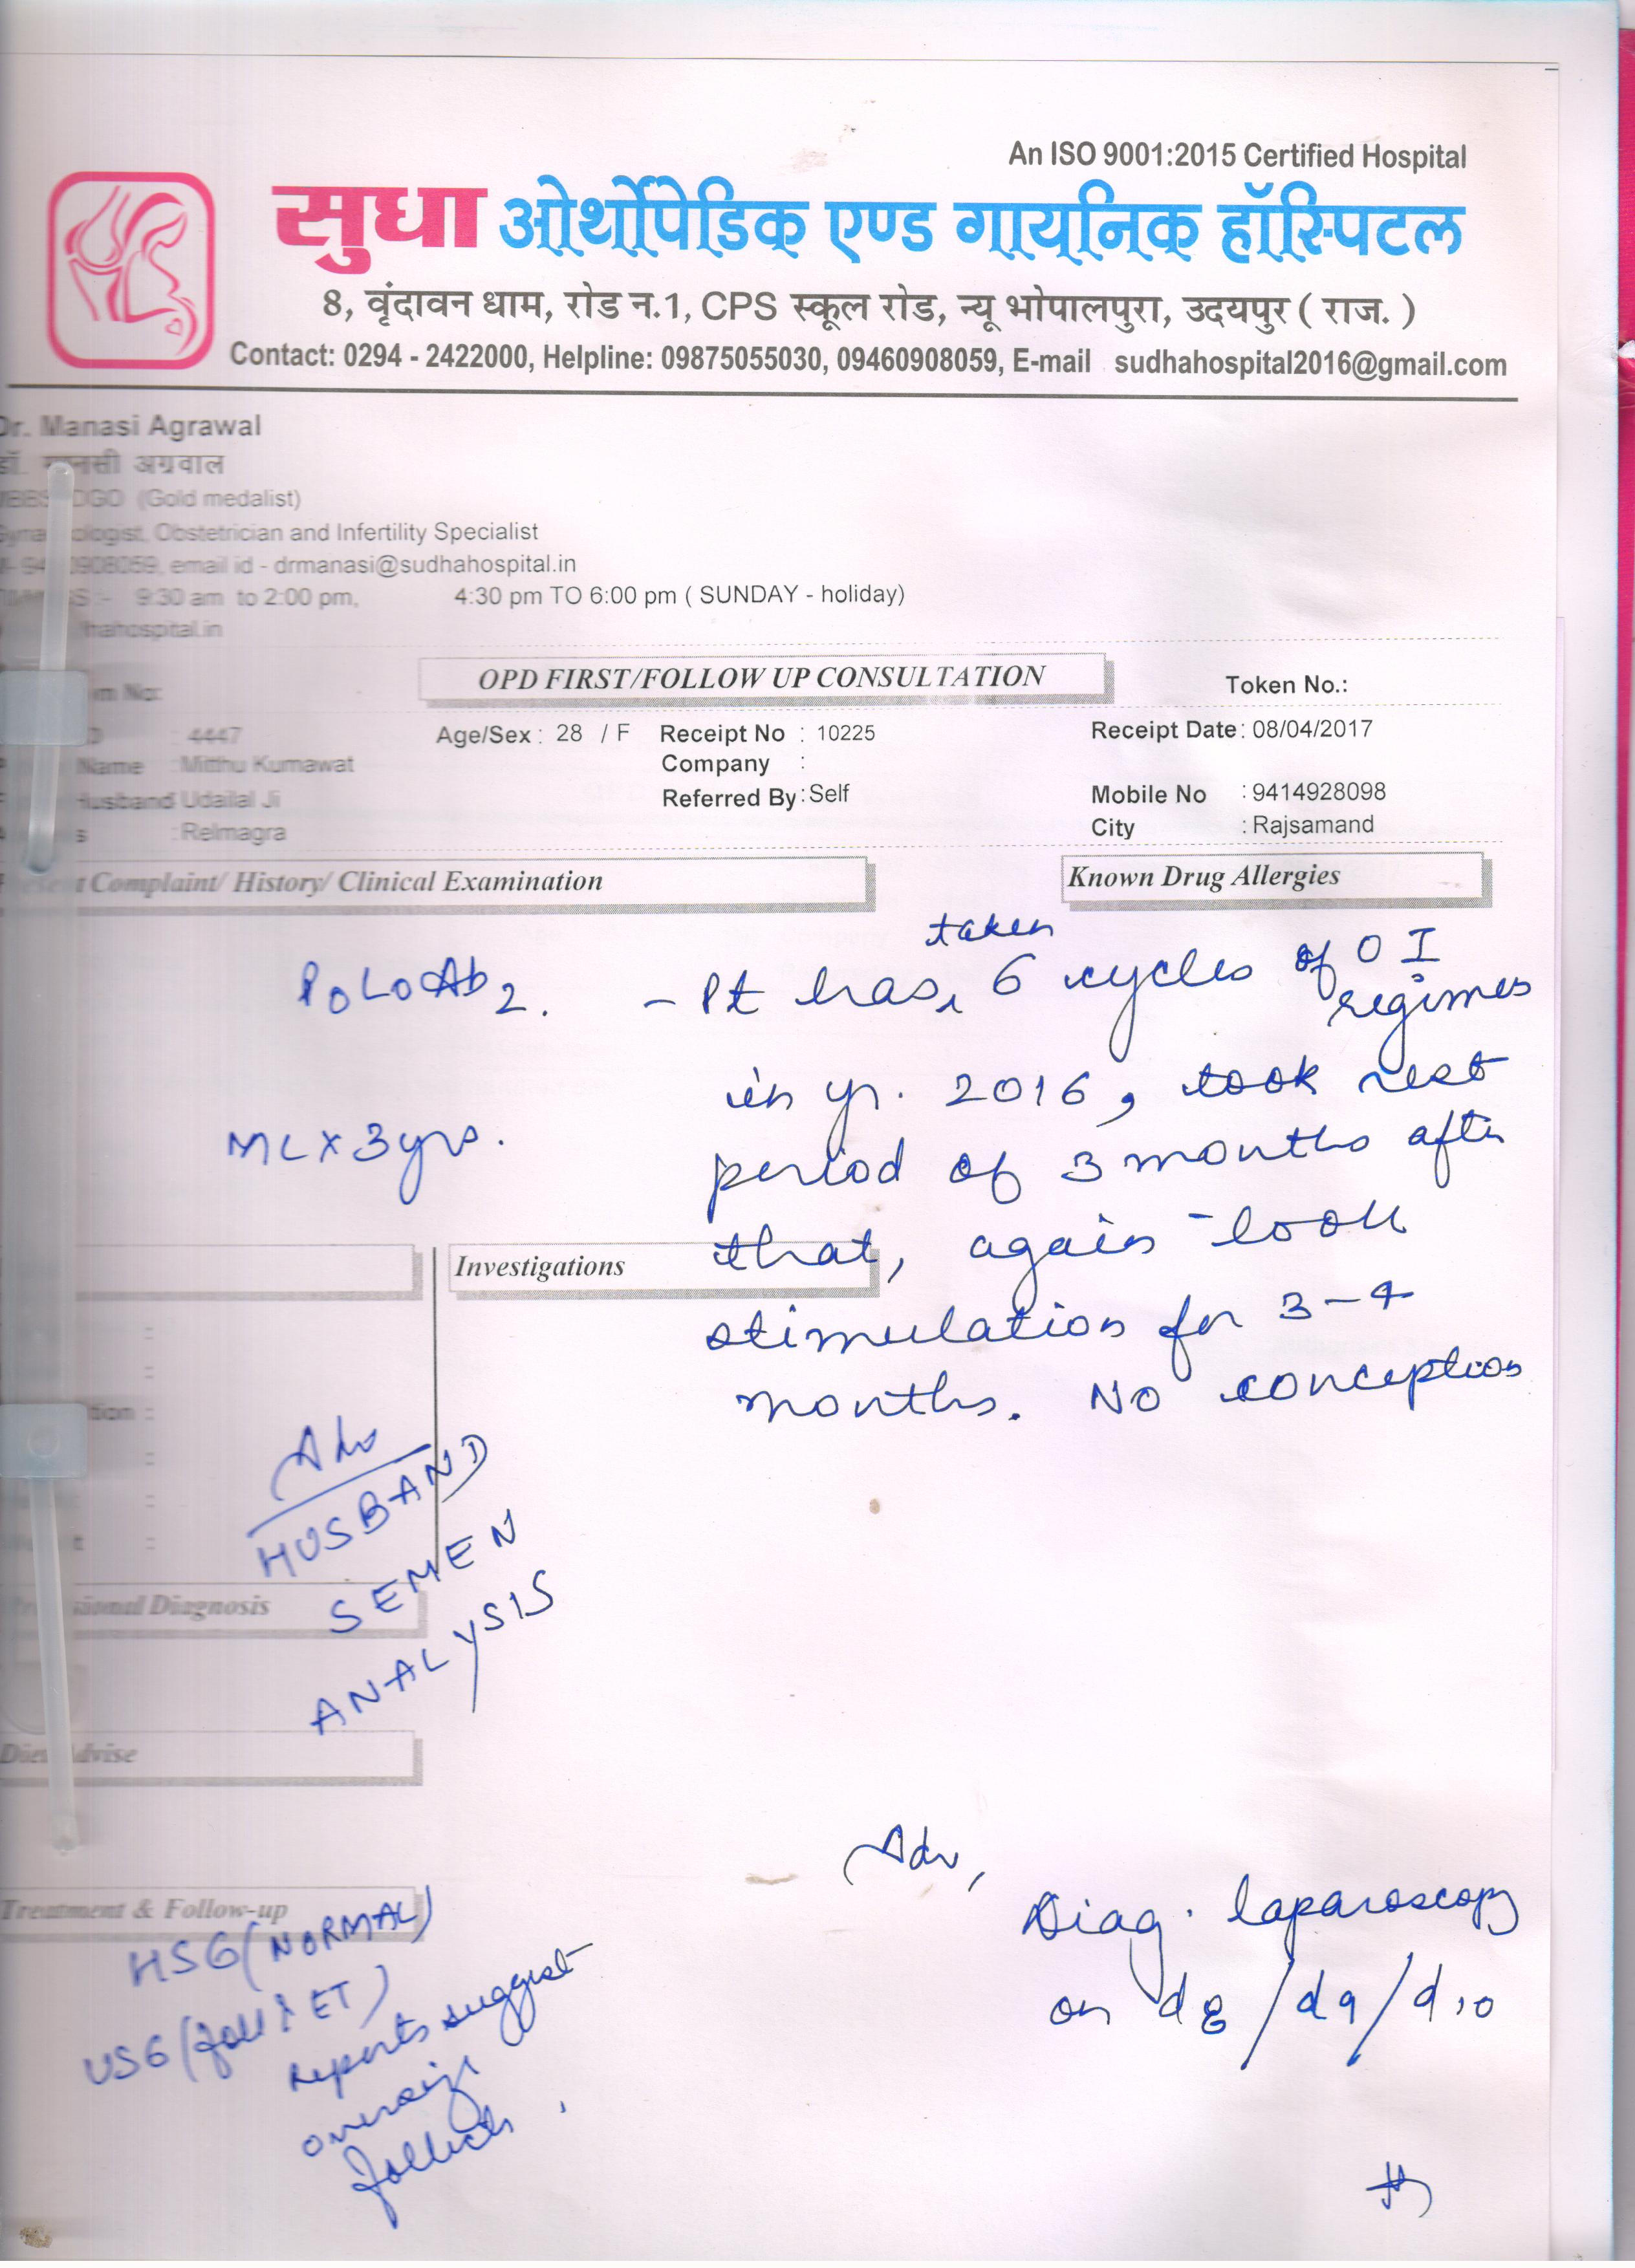 An ISO 9001:2015 Certified Hospital
सुधा ओर्थोपेडिक एण्ड गायनिक हॉस्पिटल
8, वृंदावन धाम, रोड न.1, CPS स्कूल रोड, न्यू भोपालपुरा, उदयपुर ( राज. )
Contact: 0294 - 2422000, Helpline: 09875055030, 09460908059, E-mail sudhahospital2016@gmail.com
Dr. Manasi Agrawal
अग्रवाल
DGO (Gold medalist)
Obstetrician and Infertility Specialist
email id - drmanasi@sudhahospital.in
9:30 am to 2:00 pm, 4:30 pm TO 6:00 pm ( SUNDAY - holiday)
OPD FIRST/FOLLOW UP CONSULTATION
Token No.:
: 4447 Age/Sex : 28 / F Receipt No : 10225 Receipt Date : 08/04/2017
Name : Mitthu Kumawat Company :
Husband Udailal Ji Referred By : Self Mobile No : 9414928098
: Relmagra City : Rajsamand
Complaint/ History/ Clinical Examination
Known Drug Allergies
P0L0Ab2.
- Pt has taken 6 cycles of OI regimes
in yr. 2016, took rest
MLX3yrs.
period of 3 months after
that, again took
Investigations
stimulation for 3-4
months. No conception
Adv
HUSBAND
SEMEN
ANALYSIS
Diagnosis
Treatment & Follow-up
HSG (NORMAL)
USG (foll & ET)
reports suggest
oversize
follicles.
Adv,
Diag. laparoscopy
on d8/d9/d10